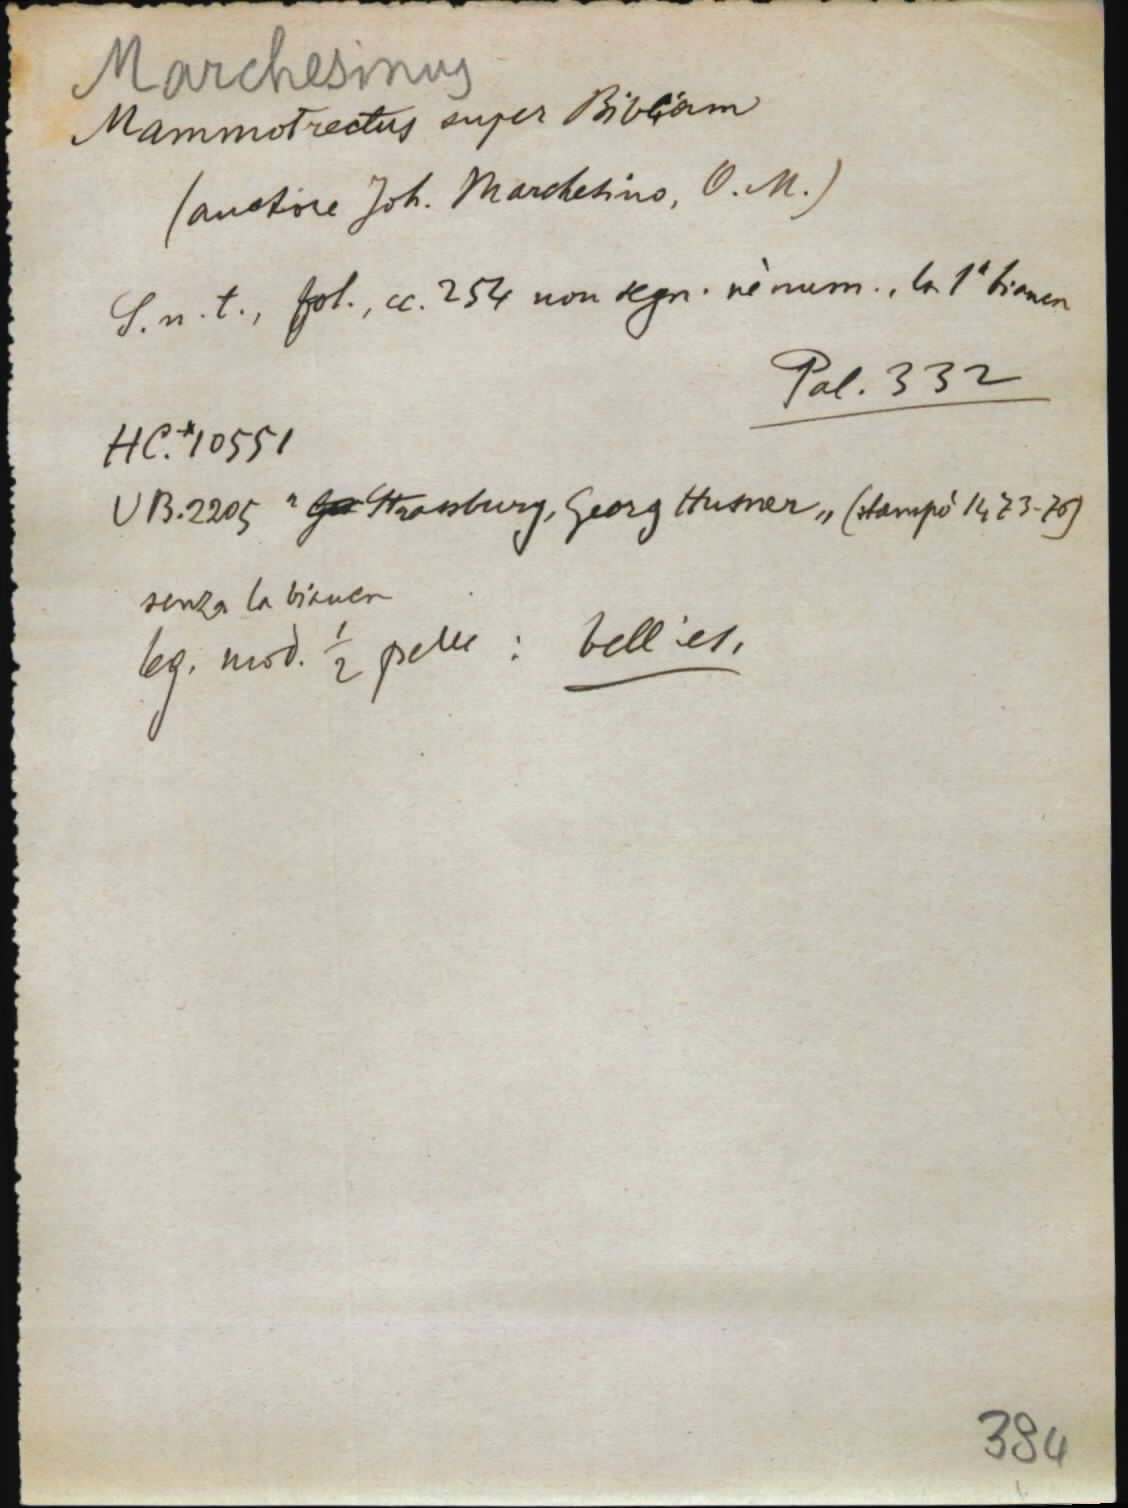 Marchesinus
Mammotrectus super Bibliam
(auctore Joh. Marchesino, O. M.)
S. n. t., fol., cc. 254 non segn. nè num., la 1ª bianca
Pal. 332
HC.*10551
UB.2205 "Strassburg, Georg Husner" (stampò 1473-76)
senza la bianca
leg. mod. 1/2 pelle : bell'es.
384